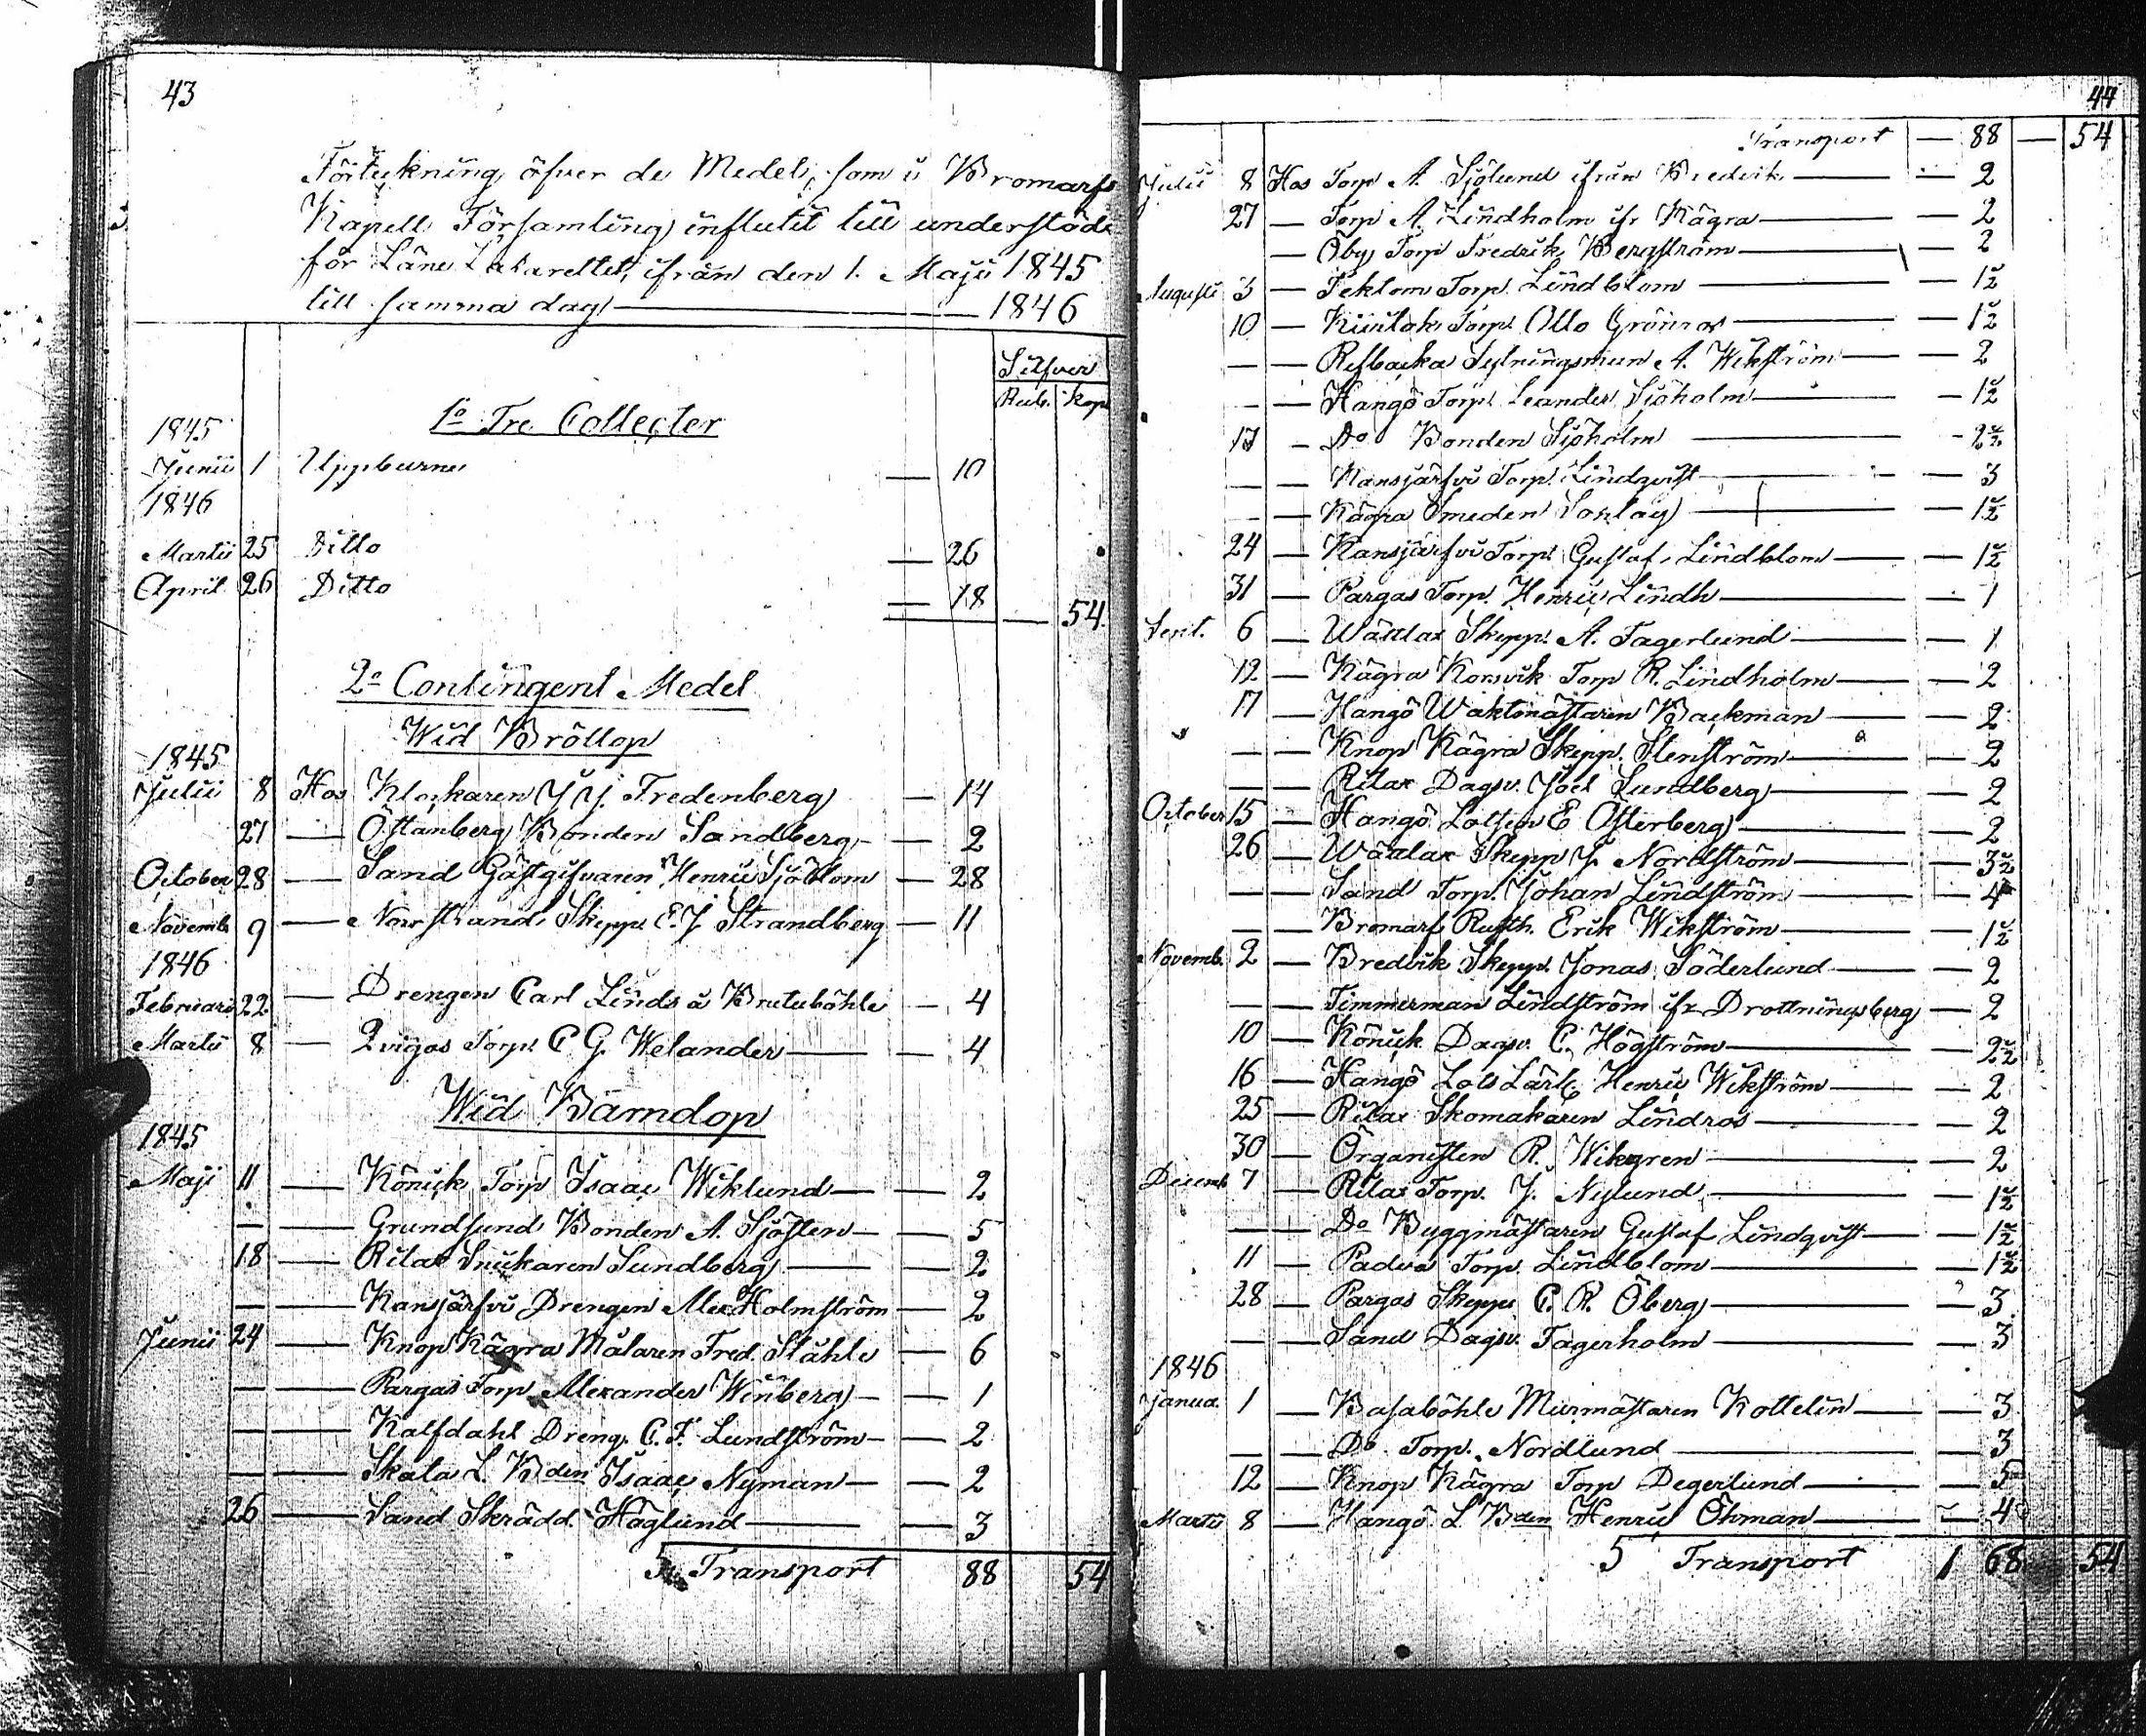 43
Förteckning öfver de Medel, som i Bromarfs
Kapell Församling influtit till understöd
för Läne Lazarettet, ifrån den 1. Maji 1845
till samma dag — 1846
Silfver
Rub. kop
1o Tre Collecter
1845
Junii 1 Uppburne — 10
1846
Martii 25 Ditto — 26
April 26 Ditto — 18
— 54.
2o Contingent Medel
Wid Bröllop
1845
Julii 8 Hos Klockaren J. J. Fredenberg — 14
27 — Östanberg Bonden Sandberg — 2
October 28 — Sand Gästgifvaren Henric Sjöblom — 28
Novemb. 9 — Norrstrand Skepp. E. J. Strandberg — 11
1846
Februarii 22 — Drengen Carl Lindr å Brutuböhle — 4
Martii 8 — Qvigos Torp. C. G. Welander — 4
Wid Barndop
1845
Maji 11 — Könick Torp Isaac Wiklund — 2
— — Grundsund Bonden A. Sjösten — 5
18 — Rilax Snickaren Sundberg — 2
— — Kansjärfvi Drengen Alex Holmström — 2
Junii 24 — Knop Kägra Målaren Fred. Ståhle — 6
— — Pargas Torp Alexander Winberg — 1
— — Kalfdahl Dreng. C. F. Lundström — 2
— — Skata L. Bden Isaac Nyman — 2
26 — Sand Skrädd. Häglund — 3
Transport 88 54
44
Transport — 88 — 54
Julii 8 Hos Torp A. Sjölund ifrån Bredvik — 2
27 — Torp A. Lindholm ifr Kägra — 2
— Öby Torp Fredrik Bergström — 2
Augusti 3 — Teklom Torp. Lindblom — 1½
10 — Torp. Otto Grönros — 1½
— — Refbacka Sytningsman A. Wikström — 2
— — Hangö Torp. Leander Sjöholm — 1½
17 — Do Bonden Sjöholm — 2½
— — Kansjärfvi Torp. Lindqvist — 3
— — Kägra Smeden — 1½
24 — Kansjärfvi Torp. Gustaf Lindblom — 1½
31 — Pargas Torp. Henric Lindh — 1
Sept. 6 — Wättlax Skepp. A. Fagerlund — 1
12 — Kägra Korsvik Torp R. Lindholm — 2
17 — Hangö Waktmästaren Backman — 2
— — Knop Kägra Skepp. Stenström — 2
— — Rilax Dagsv. Joel Lundberg — 2
October 15 — Hangö Lotsen E Österberg — 2
26 — Wättlax Skepp J. Nordström — 3½
— — Sand Torp. Johan Lindström — 4
— — Bromarf Rusth. Erik Wikström — 1½
Novemb. 2 — Bredvik Skepp. Jonas Söderlund — 2
— — Timmerman Lindström ifr Drottningsberg — 2
10 — Könick Dagsv. C. Högström — 2½
16 — Hangö Lots Lärl. Henric Wikström — 2
25 — Rilax Skomakaren Lindros — 2
30 — Organisten R. Wikgren — 2
Decemb. 7 — Rilax Torp. J. Nylund — 1½
— — Do Byggmästaren Gustaf Lindqvist — 1½
11 — Padva Torp. Lindblom — 1½
28 — Pargas Skepp. C. R. Öberg — 3
— — Sand Dagsv. Fagerholm — 3
1846
Janua. 1 — Basaböhle Murmästaren Kottelin — 3
— — Do Torp. Nordlund — 3
12 — Knop Kägra Torp Degerlund — 5
Martii 8 — Hangö L. Bden Henric Öhman — 4
5 Transport 1 68 54